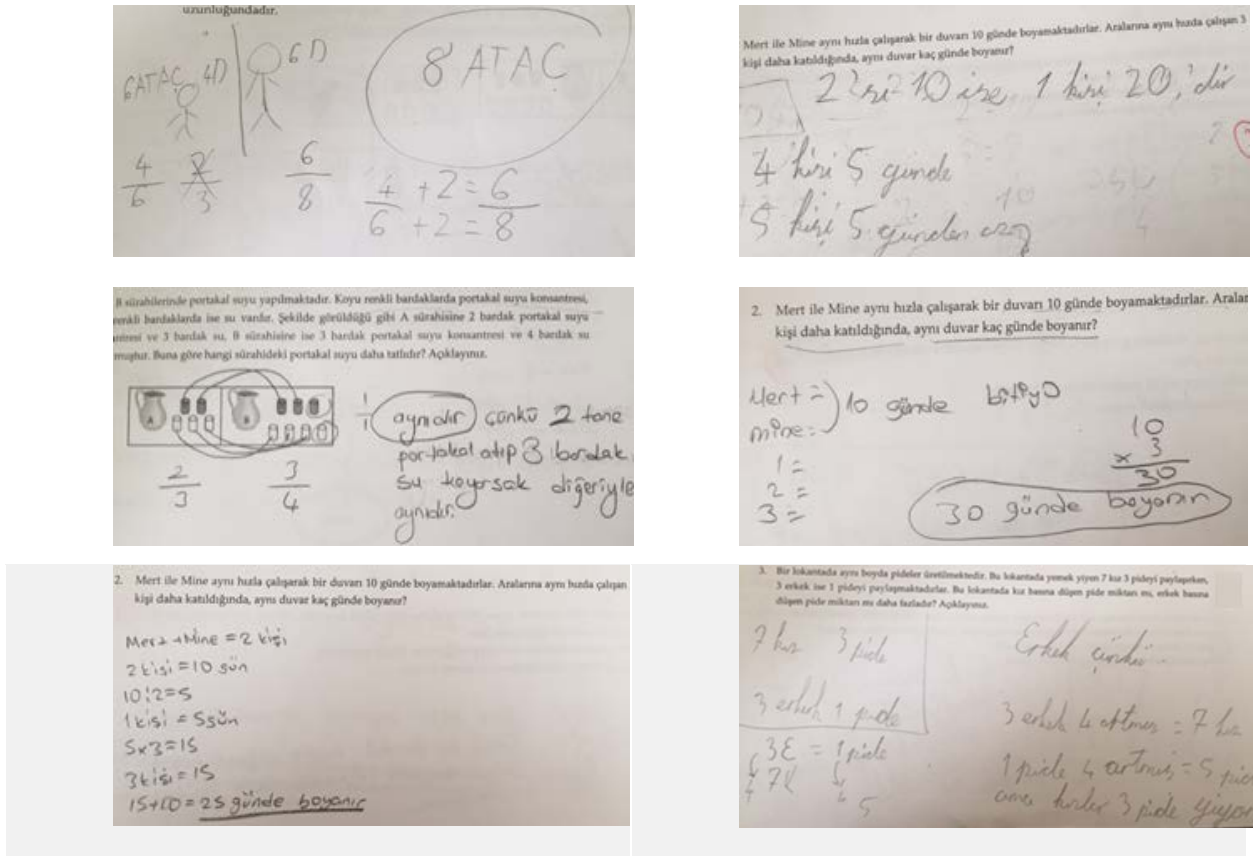 uzunluğundadır.
6ATAÇ 4D
6D
8 ATAÇ
4/6 2/3 6/8
4/6 +2 = 6 +2 = 8
Mert ile Mine aynı hızla çalışarak bir duvarı 10 günde boyamaktadırlar. Aralarına aynı hızda çalışan 3
kişi daha katıldığında, aynı duvar kaç günde boyanır?
2 10 ise 1 kişi 20, 'dir
4 kişi 5 günde
5 kişi 5 günden
B sürahilerinde portakal suyu yapılmaktadır. Koyu renkli bardaklarda portakal suyu konsantresi,
renkli bardaklarda ise su vardır. Şekilde görüldüğü gibi A sürahisine 2 bardak portakal suyu
ntresi ve 3 bardak su, B sürahisine ise 3 bardak portakal suyu konsantresi ve 4 bardak su
muştur. Buna göre hangi sürahideki portakal suyu daha tatlıdır? Açıklayınız.
A B
2/3 3/4
1/1
aynıdır çünkü 2 tane
portakal atıp 3 bardak
su koyarsak diğeriyle
aynıdır.
2. Mert ile Mine aynı hızla çalışarak bir duvarı 10 günde boyamaktadırlar. Aralar
kişi daha katıldığında, aynı duvar kaç günde boyanır?
Mert =
mine =
10 günde bitiyo
1 =
2 =
3 =
10
x 3
30
30 günde boyanır
2. Mert ile Mine aynı hızla çalışarak bir duvarı 10 günde boyamaktadırlar. Aralarına aynı hızda çalışan
kişi daha katıldığında, aynı duvar kaç günde boyanır?
Mert + Mine = 2 kişi
2 kişi = 10 gün
10:2=5
1 kişi = 5 gün
5x3=15
3 kişi = 15
15+10 = 25 günde boyanır
3. Bir lokantada aynı boyda pideler üretilmektedir. Bu lokantada yemek yiyen 7 kız 3 pideyi paylaşırken,
3 erkek ise 1 pideyi paylaşmaktadırlar. Bu lokantada kız başına düşen pide miktarı mı, erkek başına
düşen pide miktarı mı daha fazladır? Açıklayınız.
7 kız 3 pide
3 erkek 1 pide
3E = 1 pide
7K
5
Erkek çünkü
3 erkek 4 artmış = 7 kız
1 pide 4 artmış = 5 pide
ama kızlar 3 pide yiyor